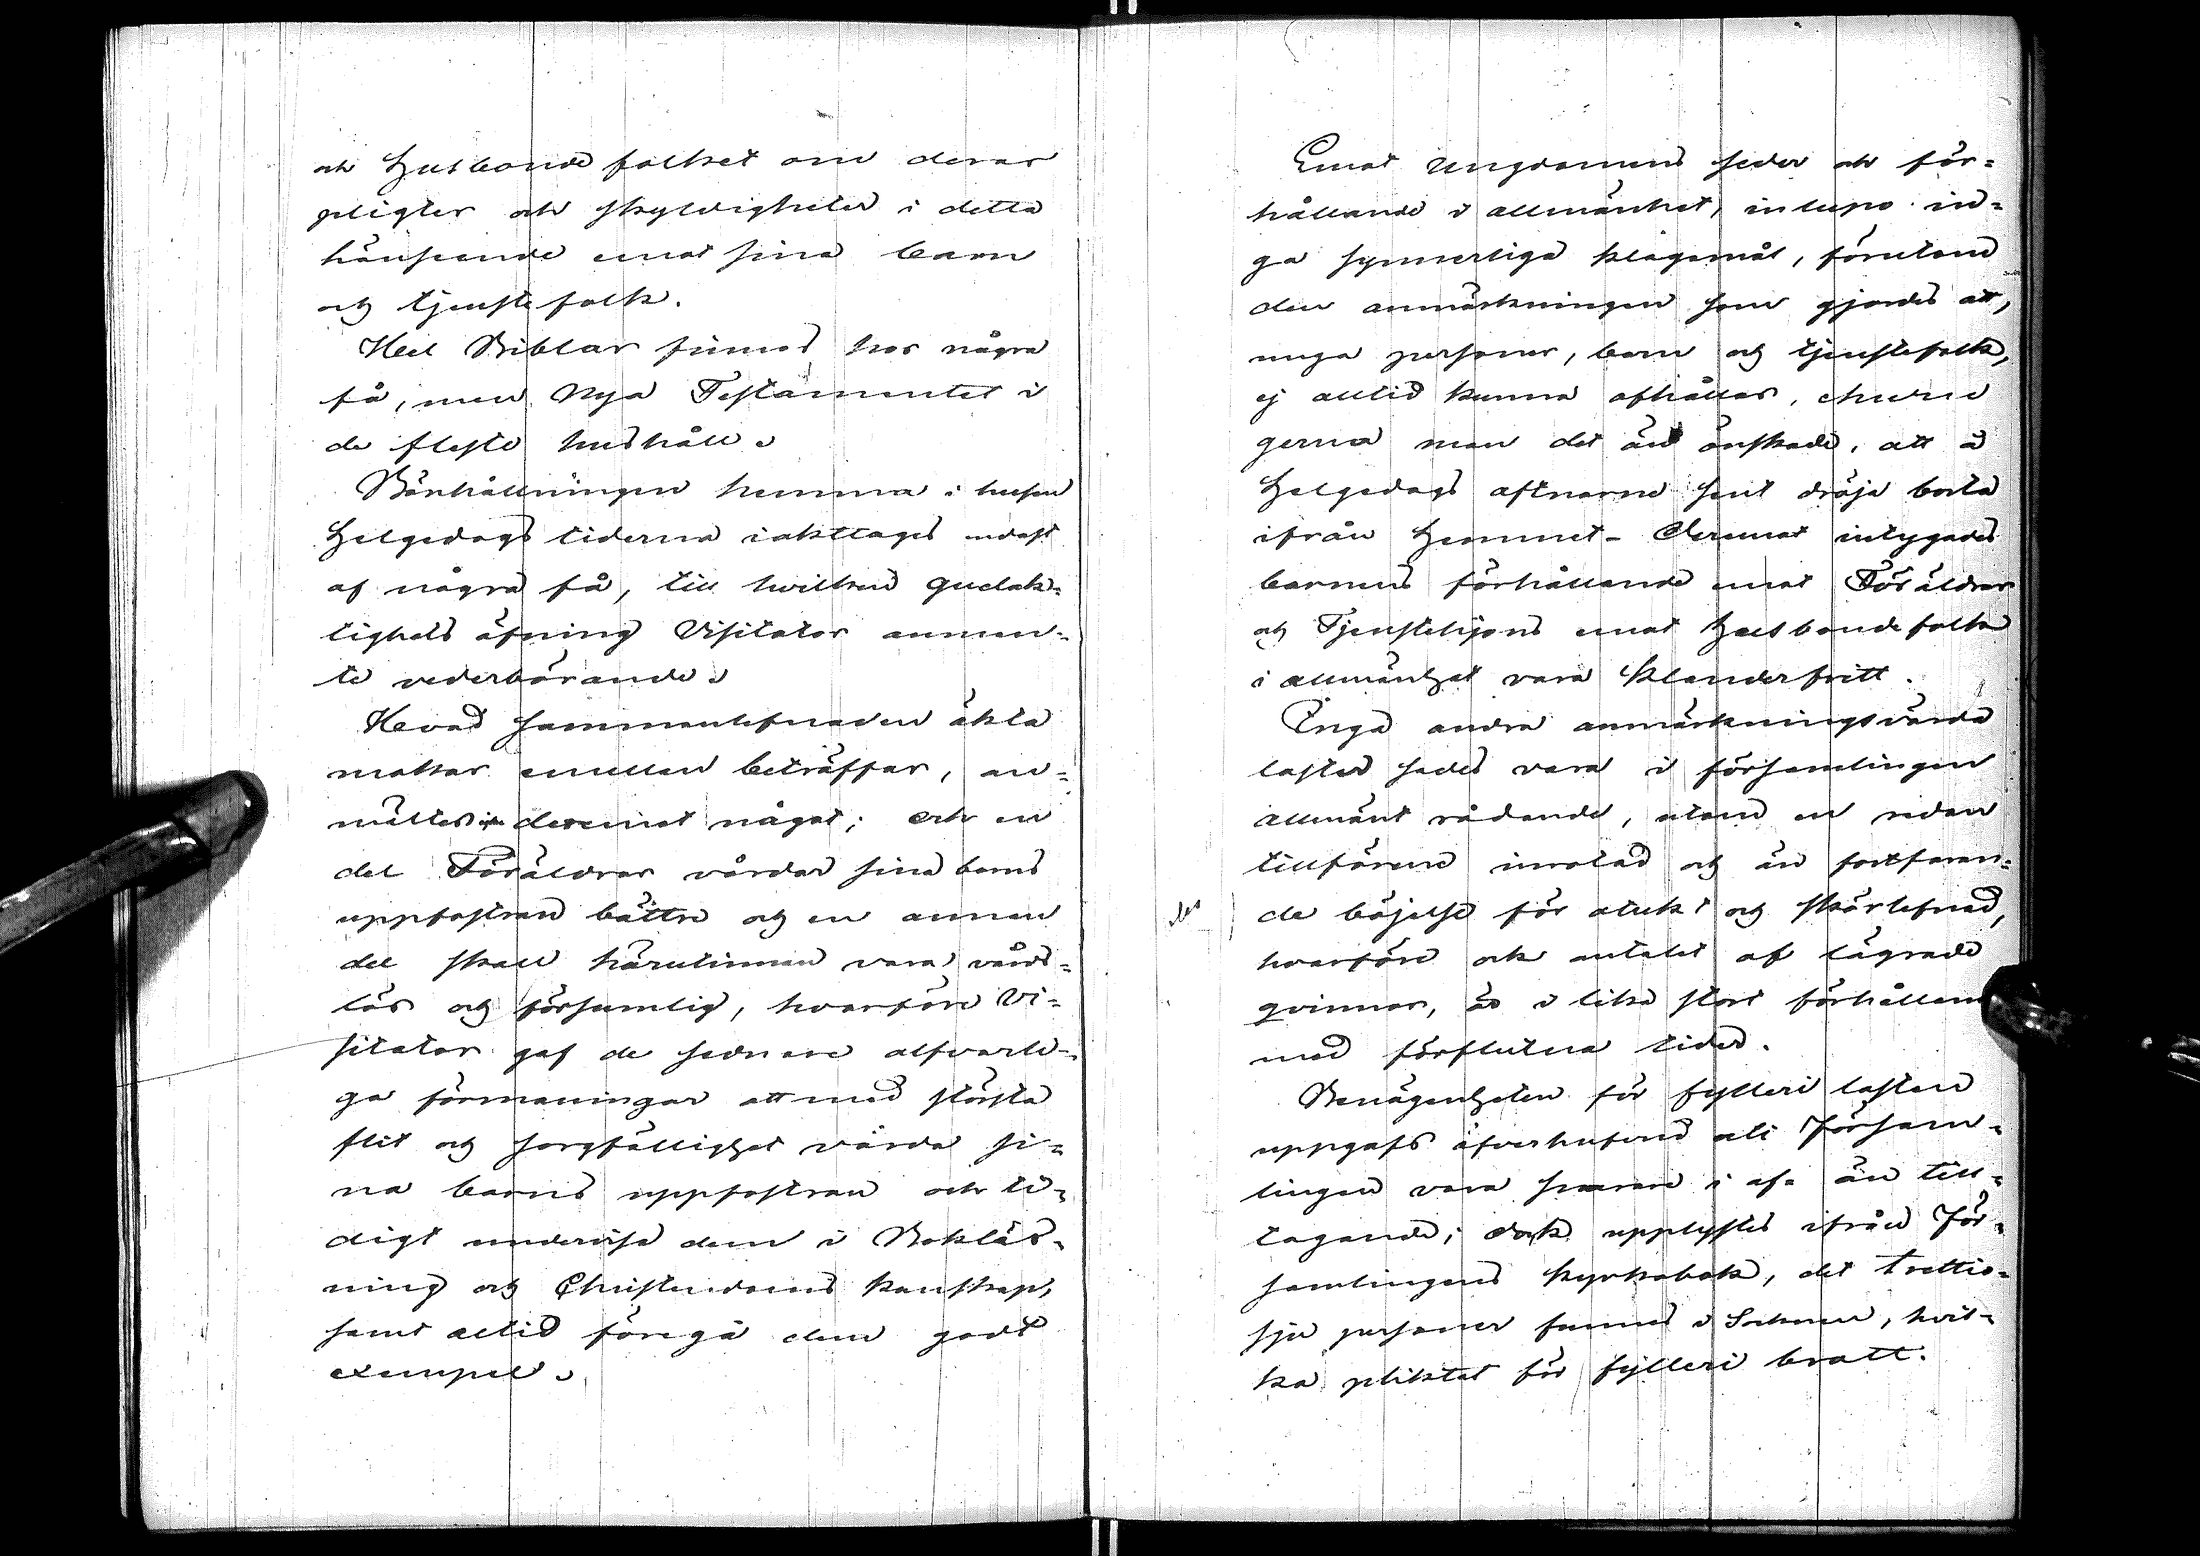 och Husbonde folket om deras
pligter och skyldigheter i detta
hänseende emot sina barn
och tjenstefolk.
Hel Biblar finnas hos några
få, men Nya Testamentet i
de fleste hushåll.
Bönhållningen hemma i husen
Helgedags tiderna iakttages endast
af några få, till hvilken gudak-
tighets öfning Visitator anman-
te vederbörande.
Hvad sammanlefnaden äkta
makar emellan beträffar, an-
mältes deremot något; och en
del Föräldrar vårdar sina barns
uppfostran bättre och en annan
del skall härutinnan vara vårds-
lös och försumlig, hvarföre Vi-
sitator gaf de sednare alfvarli-
ga förmaningar att med största
flit och sorgfällighet vårda si-
na barns uppfostran och ti-
digt undervisa dem i Bokläs-
ning och Christendoms kunskap,
samt altid föregå dem godt
exempel.
Emot Ungdomens seder och för-
hållande i allmänhet, inlupo in-
ga synnerliga klagomål, förutom
den anmärkningen som gjordes att,
unga personer, barn och tjenstefolk,
ej alltid kunna afhållas, ehuru
gerna man det än önskade, att å
Helgedags aftnarne sent dröja borta
ifrån Hemmet- Deremot intygades
barnens förhållande emot Föräldrar
och Tjenstehjons emot Husbondefolk
i allmänhet vara klanderfritt.
Inga andra anmärkningsvärda
laster sades vara i församlingen
allmänt rådande, utom en redan
tillförene inrotad och än fortfaran-
de böjelse för otukt och skörlefnad,
hvarföre och antalet af lägrade
qvinnor, är i lika stort förhållan
med förflutna tider.
Benägenheten för fylleri lasten
uppgafs öfverhufvud uti Försam-
lingen vara snarare i af- än till-
tagande; dock upplystes ifrån För-
samlingens kyrkobok, det trettio-
sju personer funnes i Socknen, hvil-
ka pliktat för fylleri brott.